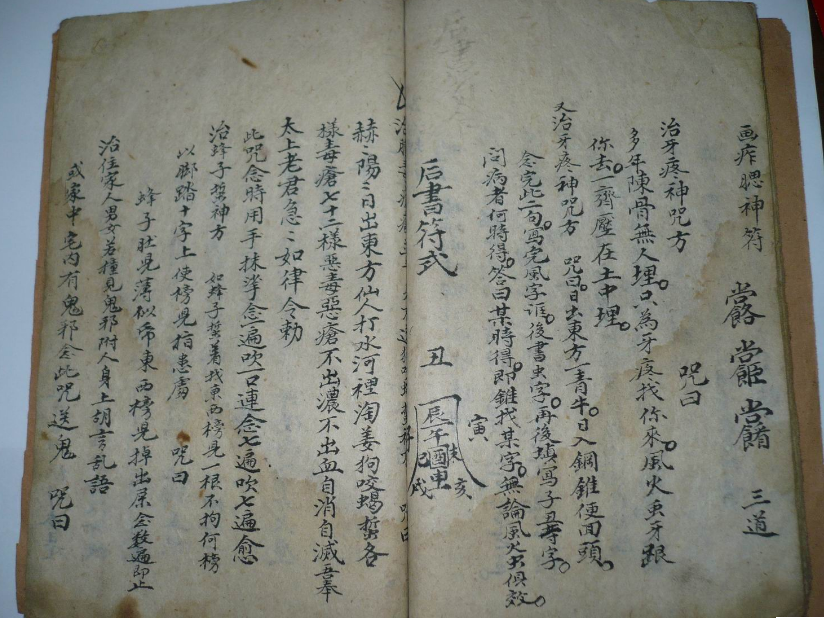 画痄腮神符 三道
治牙疼神咒方 咒曰
多年陳骨無人埋只為牙疼找你來風火虫牙跟
你去一齊壓在土中埋
又治牙疼神咒方 咒曰日出東方一青牛日入鋼錐便回頭
念完此二句寫完風字誰後書虫字再後填寫子丑等字
問病者何時得答曰某時得即錐找某字無論風火虫俱效
后書符式 丑 寅 辰 午 酉 申 巳 戌 亥
咒曰
赫〻陽〻日出東方仙人打水河裡淘姜狗咬蝎蜇各
樣毒瘡七十二樣惡毒惡瘡不出濃不出血自消自滅吾奉
太上老君急〻如律令勅
此咒念時用手抹拿念一遍吹一口連念七遍吹七遍愈
治蜂子蜇神方 如蜂子蜇着我東西榜見一根不拘何榜
以脚踏十字上使榜見指患處 咒曰
蜂子肚見薄似帋東西榜見掉出屎念数遍即止
治住家人男女若撞見鬼邪附人身上胡言乱語
或家中宅内有鬼邪念此咒送鬼 咒曰